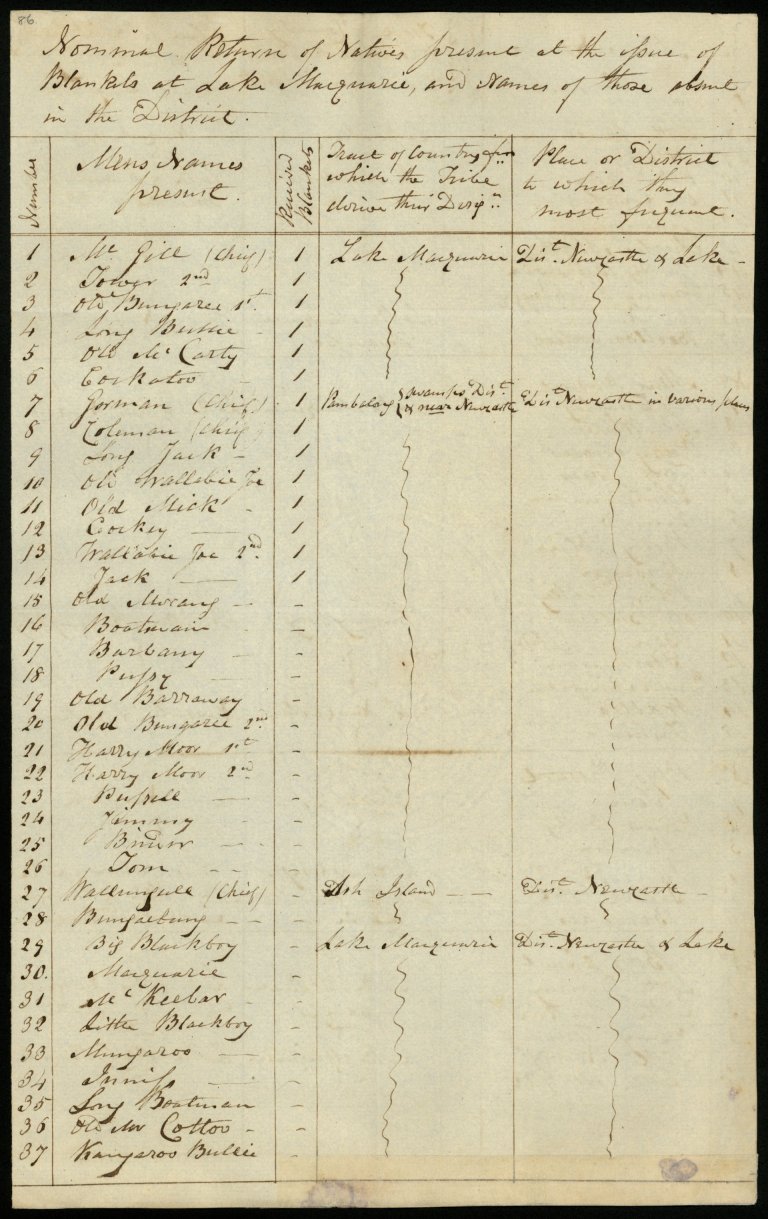 86.
Nominal Return of Natives present at the issue of
Blankets at Lake Macquarie, and Names of those absent
in the District.
Number
Mens Names
present.
Received
Blankets
Tract of Country from
which the Tribe
derive their Desig.n
Place or District
to which they
most frequent.
1 Mc Gill (Chief) 1 Lake Macquarie Dist. Newcastle & Lake -
2 Tower 2nd 1
3 Old Bungaree 1st. 1
4 Long Bullie - 1
5 Old Mc Carty 1
6 Cockatoo - 1
7 Gorman (Chief) 1 Pambalong swamps Dist. & near Newcastle Dist. Newcastle in various places
8 Coleman (Chief) 1
9 Long Jack - 1
10 Old Wallabie Joe 1
11 Old Mick - 1
12 Cockey — 1
13 Wallabie Joe 2nd. 1
14 Jack — 1
15 Old - -
16 Boatman - -
17 Barbany - -
18 Pussy - -
19 Old Barraway -
20 Old Bungaree 2nd -
21 Harry Moor 1st -
22 Harry Moor 2nd -
23 — -
24 Jimmy - -
25 - -
26 Tom - - -
27 (Chief) - Ash Island - — Dist. Newcastle -
28 - - -
29 Big Blackboy - Lake Macquarie Dist. Newcastle & Lake
30. Macquarie -
31 Mc Keebar - -
32 Little Blackboy -
33 Mungaroo — -
34 Inniss — -
35 Long Boatman -
36 Old Mr Cottoo - -
37 Kangaroo Bullie -